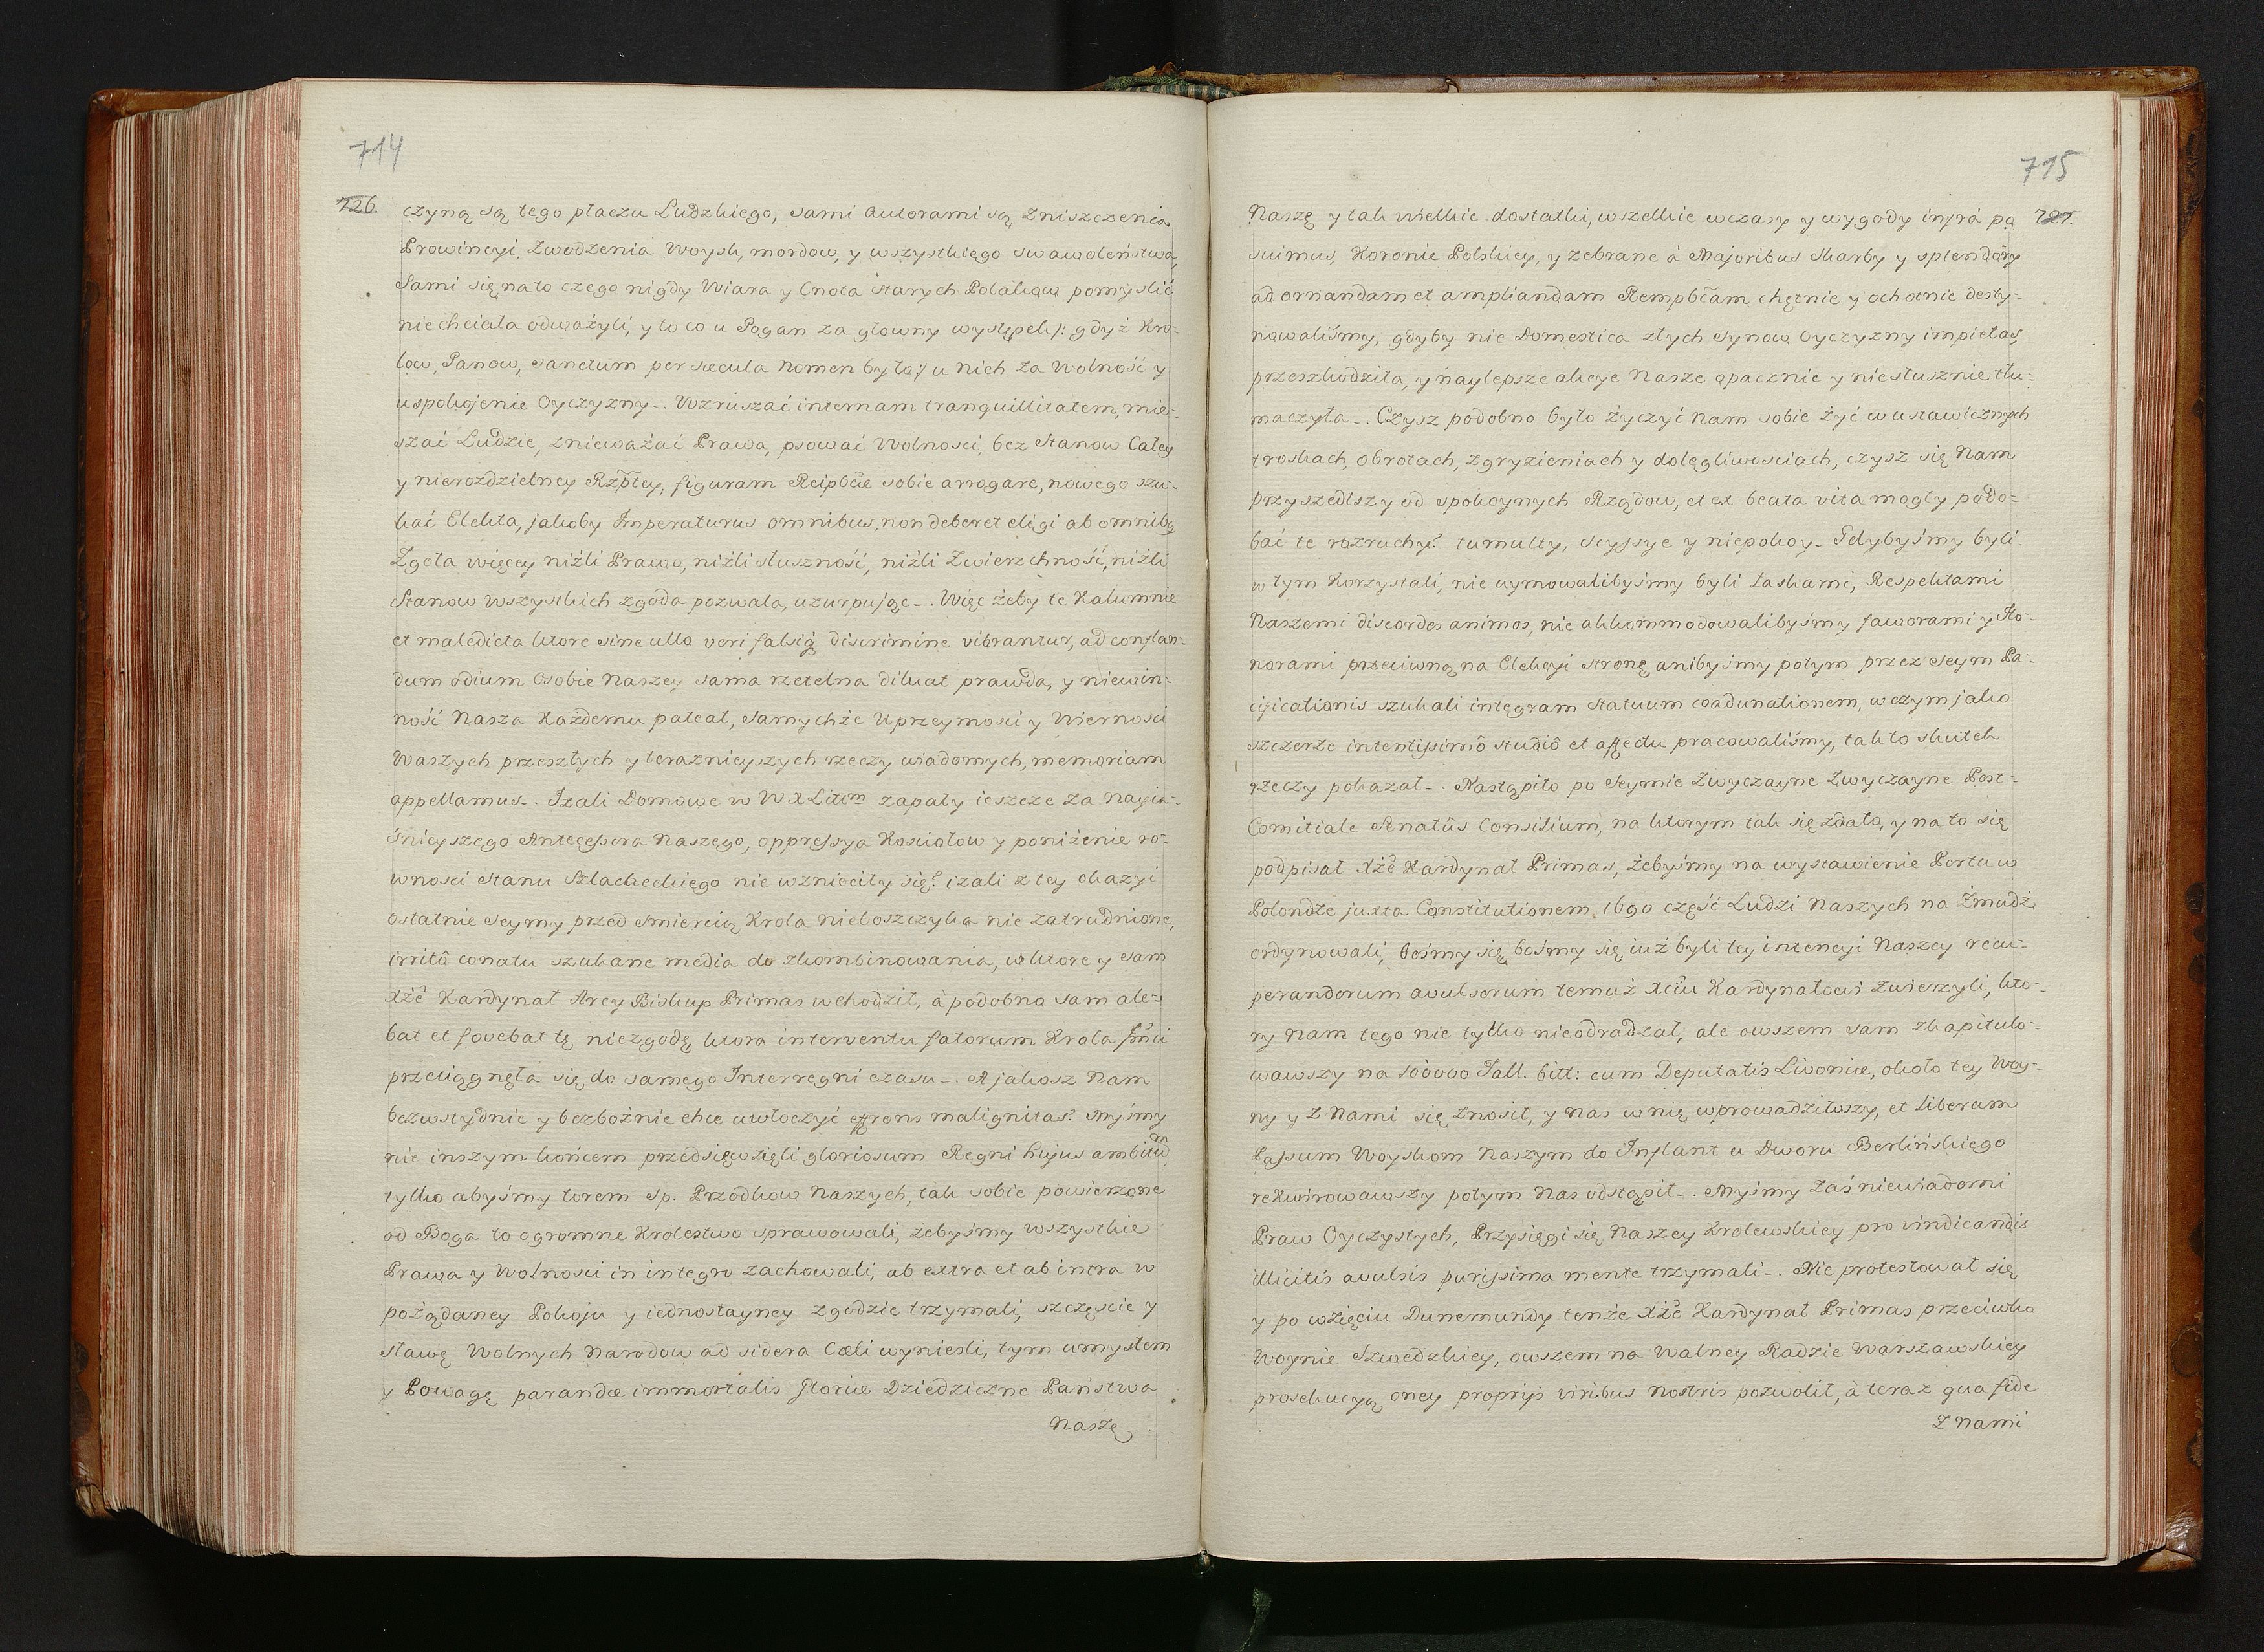 714
726. czyną są tego płaczu Ludzkiego, sami Autorami są Zniszczenia
Prowincyi, Zwodzenia Woysk, mordow, y wszystkiego swawoleństwa,
Sami się na to czego nigdy Wiara y Cnota starych Polakow pomyslić
nie chciała odważyli, y to co u Pogan za głowny występek /: gdyż Kro-
low, Panow, sanctum per sæcula nomen było :/ u nich za Wolność y
uspokojenie Oyczyzny -. Wzruszać internam tranquillitatem, mie-
szać Ludzie, znieważać Prawa, psować Wolnosci, bez Stanow Całey
y nierozdzielney Rzptey, figuram Reipbcæ sobie arrogare, nowego szu-
kać Elekta, jakoby Imperaturus omnibus, non deberet eligi ab omnibq
Zgoła więcey niżli Prawo, niżli słuszność, niżli Zwierzchność, niżli
Stanow wszystkich zgoda pozwala, uzurpując -. Więc żeby te Kalumnie
et maledicta ktore sine ullo veri falsiq discrimine vibrantur, ad conflan-
dum odium Osobie Naszey sama rzetelna diluat prawda, y niewin-
ność Nasza Każdemu pateat, samychże Uprzeymosci y Wiernosci
Waszych przeszłych y teraznieyszych rzeczy wiadomych, memoriam
appellamus -. Izali Domowe w W X Littm zapały ieszcze za Nayia-
śnieyszego Antecessora Naszego, oppressya Kosciołow y poniżenie ro-
wnosci Stanu Szlacheckiego nie wznieciły się? izali z tey okazyi
ostatnie Seymy przed smiercią Krola Nieboszczyka nie zatrudnione,
irritô conatu szukane media do zkombinowania, w ktore y sam
Xżê Kardynał Arcy Biskup Primas wchodził, à podobno sam ale-
bat et fovebat tę niezgodę ktora interventu fatorum Krola Jmci
przeciągnęła się do samego Interregni czasu -. A jakosz Nam
bezwstydnie y bezbożnie chce uwłoczyć effrens malignitas? Myśmy
nie inszym końcem przedsięwzięli gloriosum Regni hujus ambitum
tylko abyśmy torem Sp. Przodkow Naszych, tak sobie powierzone
od Boga to ogromne Krolestwo sprawowali, żebyśmy wszystkie
Prawa y Wolnosci in integro zachowali, ab extra et ab intra w
pożądaney Pokoju y iednostayney zgodzie trzymali, szczęscie y
sławę Wolnych Narodow ad sidera Cæli wyniesli, tym umysłem
y Powagę parandæ immortalis gloriæ Dziedziczne Państwa
Naszę
715
Naszę y tak wielkie dostatki, wszelkie wczasy y wygody infrà po 727.
suimus, Koronie Polskiey, y zebrane à Majoribus skarby y splendory
ad ornandam et ampliandam Rempbcam chętnie y ochotnie desty-
nowaliśmy, gdyby nie Domestica złych Synow Oyczyzny impietas,
przeszkodziła, y naylepsze akcye Nasze opacznie y niesłusznie tłu-
maczyła -. Czysz podobno było życzyć Nam sobie żyć w ustawicznych
troskach, obrotach, zgryzieniach y dolęgliwosciach, czysz się Nam
przyszedłszy od spokoynych Rządow, et ex beata vita mogły podo-
bać te rozruchy? tumulty, scyssye y niepokoy -. Gdybyśmy byli
w tym Korzystali, nie uymowalibyśmy byli łaskami, Respektami
Naszemi discordes animos, nie akkommodowalibyśmy faworami y Ho-
norami przeciwną na Elekcyi stronę anibyśmy potym przez Seym Pa-
cificationis szukali integram Statuum coadunationem, w czym jako
szczerze intentissimô studiô et affectu pracowaliśmy, tak to skutek
rzeczy pokazał -. Nastąpiło po Seymie Zwyczayne Zwyczayne Post-
Comitiale Senatûs Consilium, na ktorym tak się zdało, y na to się
podpisał Xżê Kardynał Primas, żebyśmy na wystawienie Portu w
Polondze juxta Constitutionem 1690 część Ludzi Naszych na Żmudź
ordynowali, bośmy się bośmy się iuż byli tey intencyi Naszey recu-
perandorum avulsorum temuż Xciu Kardynałowi zwierzyli, kto-
ry Nam tego nie tylko nieodradzał, ale owszem sam zkapitulo-
wawszy na 100000 Tall. bitt: cum Deputatis Livoniæ, około tey Woy-
ny y z Nami się znosił, y Nas w nię wprowadziłszy, et liberum
Passum Woyskom Naszym do Inflant u Dworu Berlińskiego
rekwirowawszy potym Nas odstąpił -. Myśmy zaś niewiadomi
Praw Oyczystych, Przysięgi się Naszey Krolewskiey pro vindicandis
illicitis avulsis purissima mente trzymali -. Nie protestował się
y po wzięciu Dunemundy tenże Xżê Kardynał Primas przeciwko
Woynie Szwedzkiey, owszem na Walney Radzie Warszawskiey
prosekucyą oney propriis viribus nostris pozwolił, à teraz qua fide
Z Nami